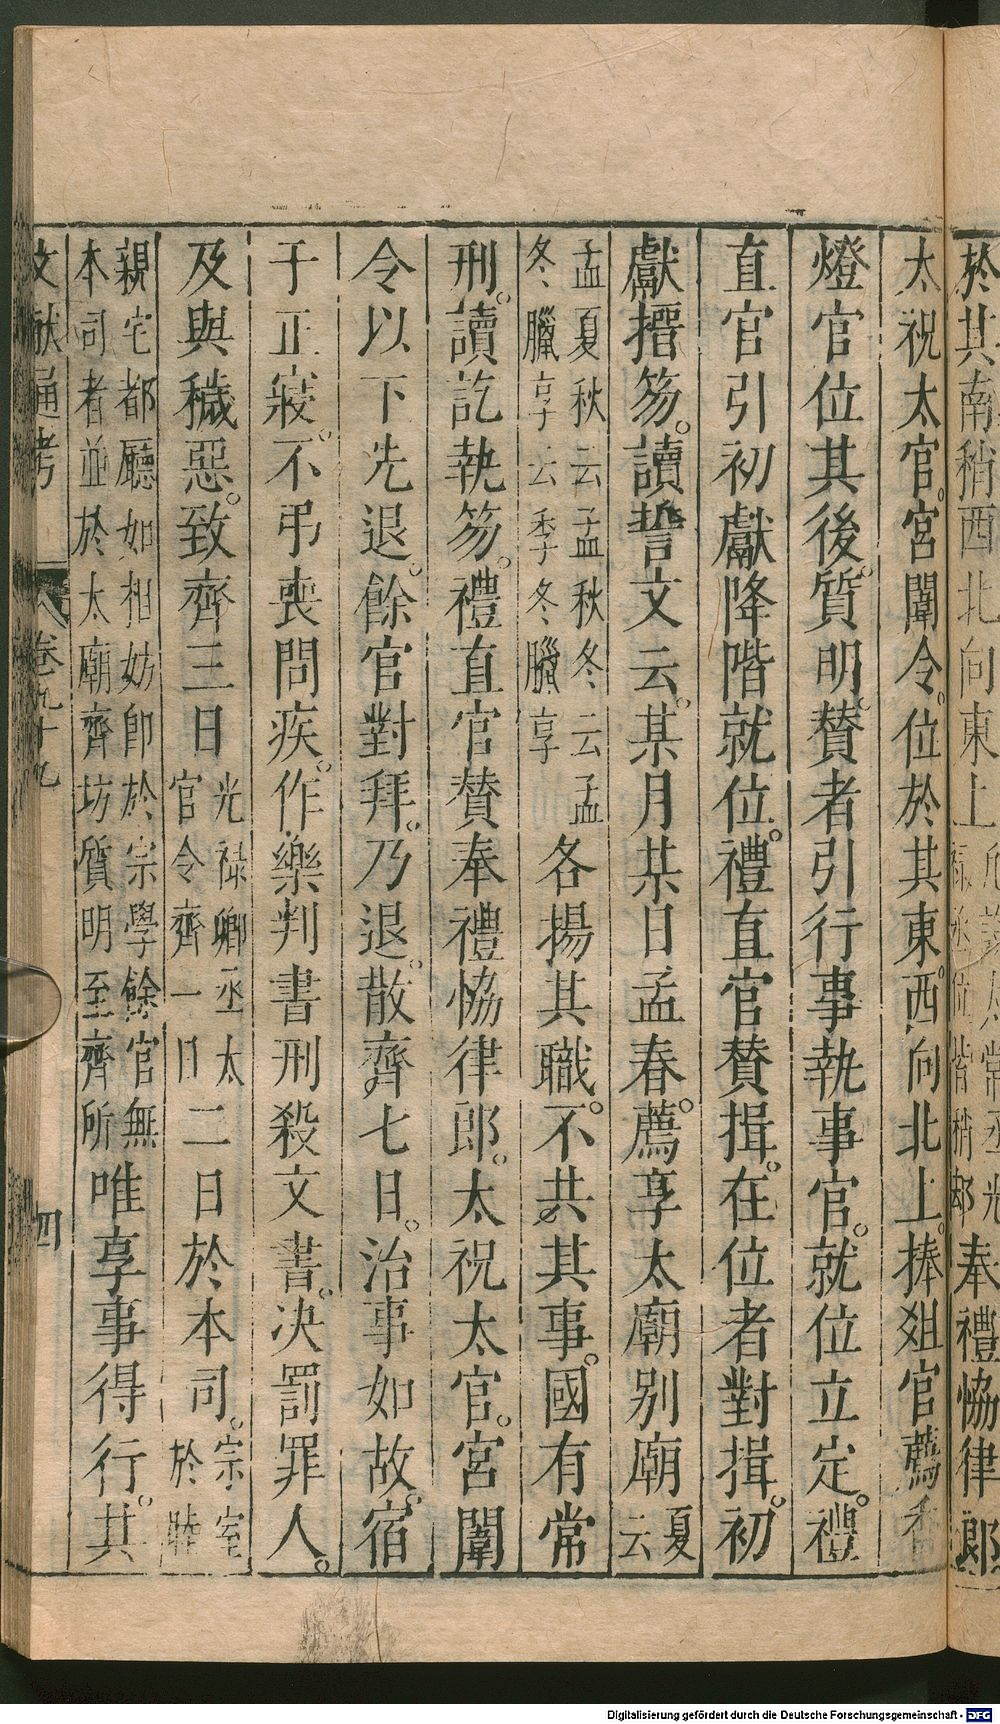 於其南稍西北向東上奉禮恊律郎
太祝太官。宮闈令。位於其東。西向北上。捧爼官薦香
燈官位其後。質明。贊者引行事執事官。就位立定。禮
直官引初獻降階就位。禮直官贊揖。在位者對揖。初
獻搢笏。讀誓文云。某月某日孟春。薦享太廟别廟夏云
孟夏秋云孟秋冬云孟冬臘享云季冬臘享各揚其職。不共其事。國有常
刑。讀訖執笏。禮直官贊奉禮恊律郎。太祝太官。宮闈
令以下先退。餘官對拜。乃退。散齊七日。治事如故。宿
于正寢。不弔喪問疾。作樂判書刑殺文書。决罰罪人。
及與穢惡。致齊三日光祿卿丞太官令齊一日二日於本司。宗室於睦
親宅都廳如相妨卽於宗學餘官無本司者並於太廟齊坊質明至齊所唯享事得行。其
文獻通考 卷九十九 四
Digitalisierung gefördert durch die Deutsche Forschungsgemeinschaft - DFG